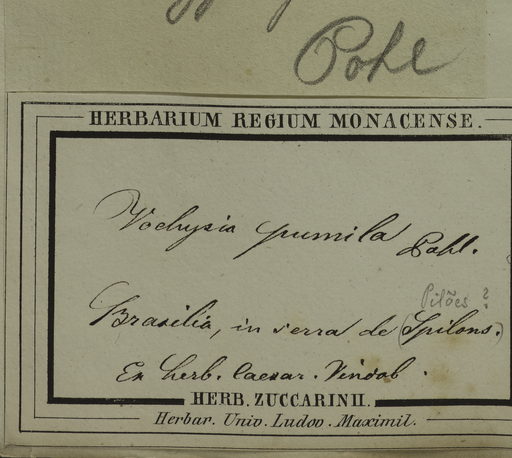 Pohl
HERBARIUM REGIUM MONACENSE.
Vochysia pumila Pohl.
Pilões ?
Brasilia, in serra de (Spilons.)
Ex herb. Caesar. Vindob.
HERB. ZUCCARINII.
Herbar. Univ. Ludov. Maximil.